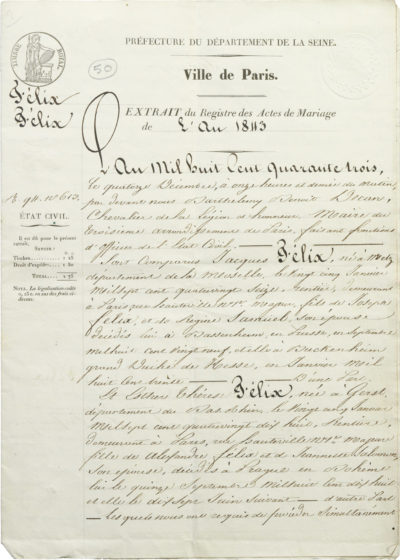 TIMBRE ROYAL
50
PRÉFECTURE DU DÉPARTEMENT DE LA SEINE.
Ville de Paris.
Félix
Félix
EXTRAIT du Registre des Actes de Mariage
de L'An 1843
L'An Mil huit Cent quarante trois,
le quatorze Décembre, à onze heures et demie du matin,
par devant nous Barthelemy Benoit Decan,
Chevalier de la Légion d'honneur, Maire du
troisième arrondissement de Paris, faisant fonctions
d'officier de l'Etat Civil;
ÉTAT CIVIL.
Il est dû pour le présent
Timbre
Droit d'expéd.
TOTAL
NOTA. La légalisation coûte
Sont Comparus Jacques Félix, né à Metz
département de la Moselle, le vingt cinq Janvier
Mil sept cent quatre vingt seize, Rentier, demeurant
à Paris rue hauteville N.° majeur, fils de Joseph
Félix, et de Régine Samuel, son épouse
décédés lui à Bassenheim en Prusse, en Septembre
mil huit cent vingt neuf, et elle à Buckenheim
grand Duché de Hesse, en Janvier mil
huit Cent trente D'une Part
Et Esther Thérèse Félix, née à
département du Bas Rhin, le vingt Janvier
Mil sept cent quatre vingt dix huit, Rentière,
demeurant à Paris, rue hauteville N.° majeure
fille de Alexandre Félix et de Jeannette Salomon,
son épouse, décédés à Prague en Bohême
lui le quinze Septembre Mil huit cent dix huit
et elle le dix sept Juin suivant — d'autre Part
— Lesquels nous ont requis de procéder simultanément